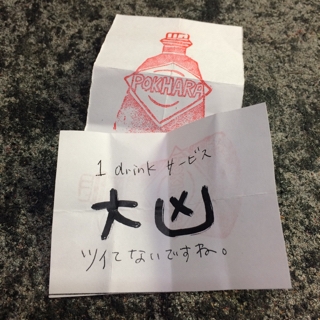 POKHARA
1 drink サービス
大凶
ツイてないですね。